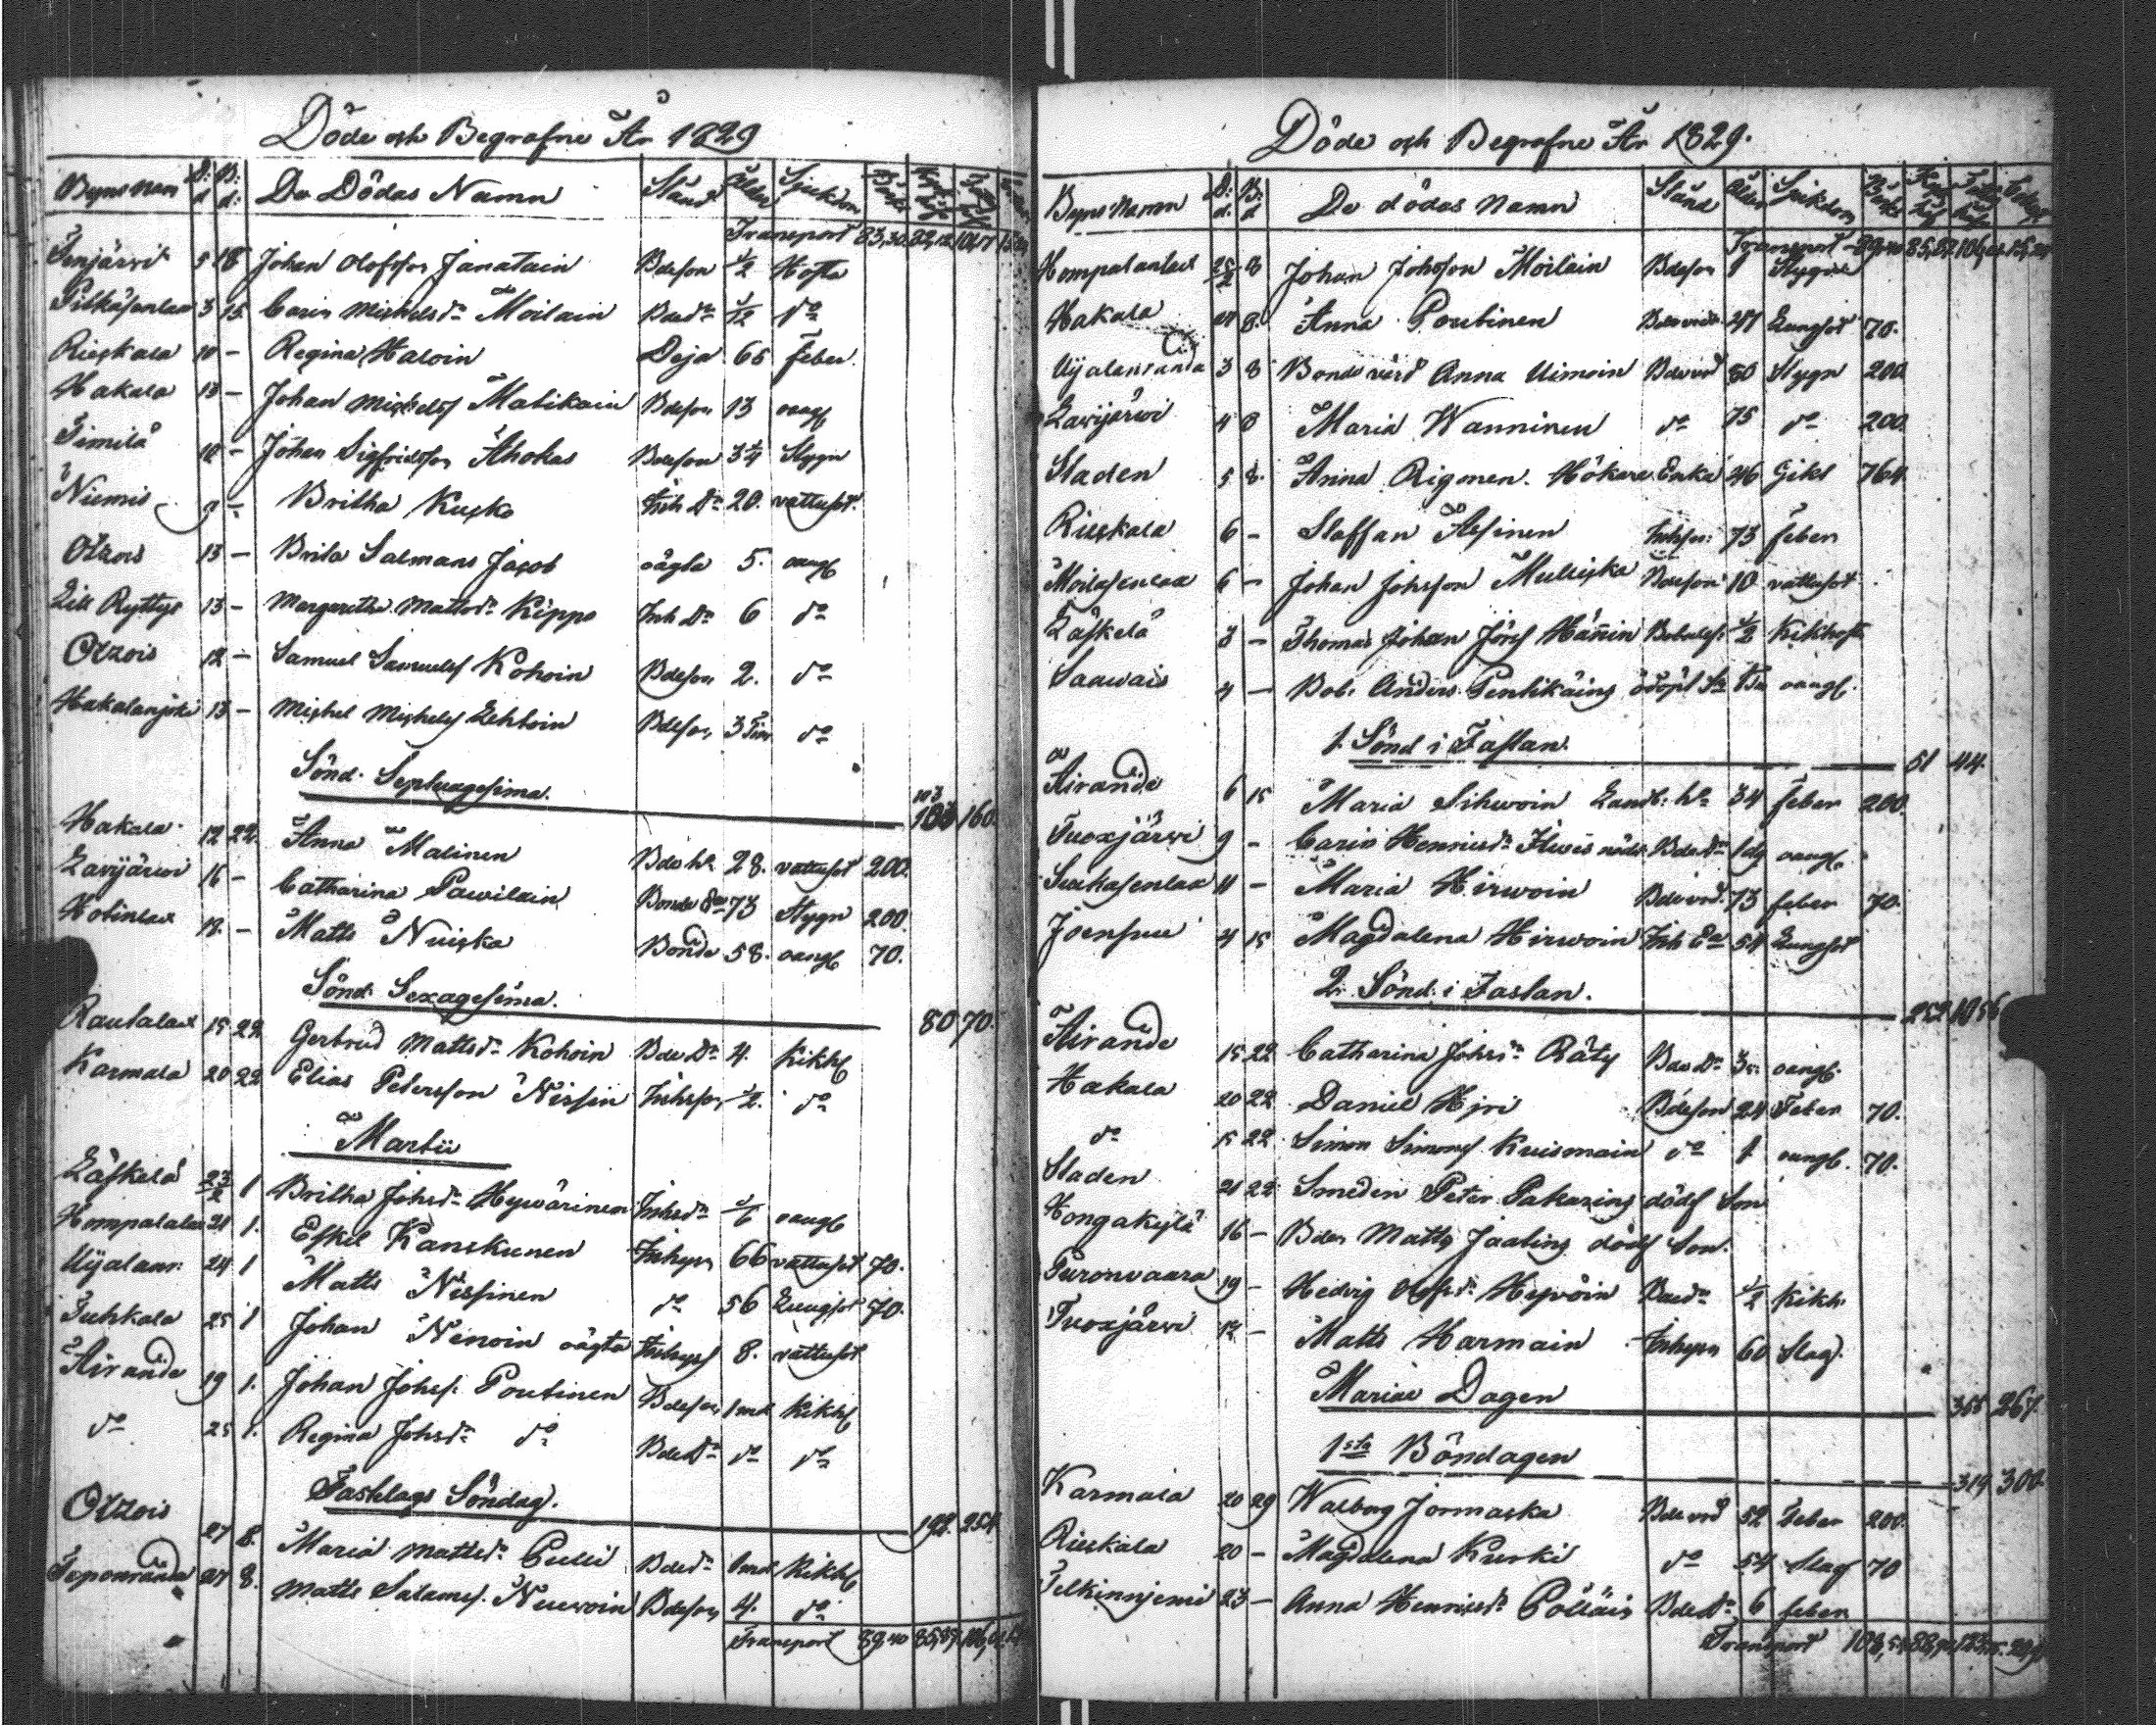 Döde och Begrafne År 1829
Byns Namn D: d: B: d: De Dödas Namn Stånd Ålder Sjukdom
Transport
5 18 Johan Olofsson Janatain Bdeson 1/2 Hosta
3 15 Carin Michelsdr Moilain Bdedr 1/12 do
Rieskala 10 – Regina Haloin Deja 65 feber
Hakala 13 – Johan Michelss Matikain Bdeson 13 oangf
Similä 10 – Johan Sigfridsson Ahokas Bdeson 3 1/4 Stygn
Niemis 9 – Britha Kuska Inh Dr 20. vattusot.
Otzois 13 – Brita Salmans Jacob oägta 5. oangf
Lill Ryttys 13 – Margaretha Mattsdr Kippo Inh Dr 6 do
Otzois 12 – Samuel Samuelss Kohoin Bdeson 2. do
Hakalanjoki 13 – Michel Michelss Lehtoin Bdeson 3 tim do
Sönd. Septuagesima. 103 160
Hakala 12 22. Anna Malinen Bde h. 28. vattusot 200.
Lavijärvi 16 – Catharina Pawilain Bonde 73 Stygn 200
18. – Matts Nuiska Bonde 58. oangf 70.
Sönd. Sexagesima. 80 70.
Rautalax 15 22 Gertrud Mattsdr Kohoin Bde Dr 4. Kikhf
Karmala 20 22 Elias Petersson Nissin Inhson 1/2. do
Martii
Läskelä 23/2 1 Britha Johsdr Hyvärinen Inhsdr 1/6 oangf
21 1. Eskil Kanskunen Inhysn 66 vattusot 70.
Uijalanr: 24 1 Matts Nissinen do 56 Lungsot 70.
Tuhkala 25 1 Johan Ninoin oägta Inhyss 8. vattusot
Airande 19 1. Johan Johss: Poutinen Bdeson 1 md Kikhf
do 25 1. Regina Johsdr do Bde Dr do do
Fastlags Söndag. 192. 254
Otzois 27 8. Maria Mattsdr Pulli Bdedr 1 md Kikhf
27 8. Matts Salomss. Neuvoin Bdeson 4. do
Transport 89,40
Döde och Begrafne År 1829.
Byns Namn D: d. B: d De dödas Namn Stånd Ålder Sjukdom
Transport
25/2 8 Johan Johsson Moilain Bdeson 1 Stygn
Hakala 27 8. Anna Poutinen Bdevrd 27 Lungsot 70.
Uijalanranda 3 8 Bondevärd Anna Uimoin Bdevrd 80 Stygn 200
Lavijärvi 4 8 Maria Wanninen do 75 do 200.
Staden 5 8. Anna Rigonen. Hökare Enka 46 Gikt 764
Rieskala 6 – Staffan Ilsinen Inhson: 73 feber
Moilasenlax 6 – Johan Johsson Mulliska Bdeson 10 vattusot
Läskelä 3 – Thomas Johan Jöns Hänin 1/2 Kikhosta
Saawais 4 – Bob: Anders Pentikäins odöpt oangf.
1. Sönd i Fastan. 51 44.
Airande 6 15 Maria Sihvoin 34 feber 200.
Tuoxjärvi 9 – Carin Henricsdr Ilvis nöds. Bde Dr 1 dg oangf.
11 – Maria Hirvoin Bdevrd. 73 feber 70.
Joensuu 4 15 Magdalena Hirvoin Inh 54 Lungsot
2. Sönd: i Fastan. 252 1056
Airande 15 22 Catharina Johsdr Räty Bde Dr oangf.
Hakala 20 22 Daniel Hjri Bdeson 24 Feber 70.
do 15 22. Simon Simonss Kuismain do 1 oangf. 70.
Staden 21 22 Smeden Peter Pakarins dödf Son
Hongakylä 16 – Bden Matts Jaatins dödf Son.
Puronvaara 19 – Hedvig Olofsdr Hyvöin Bdedr 1/2 Kikh.
Tuoxjärvi – Matts Harmain Inhysn 60 Slag.
Mariæ Dagen 267.
1sta Böndagen 319 300.
Karmala 20 29 Walborg Jormaska Bdevrd 52 Feber 200.
Rieskala 20 – Magdalena Kurki do 54 Slag 70
23 – Anna Henricsdr Pölläin Bde Dr 6 feber
Transport